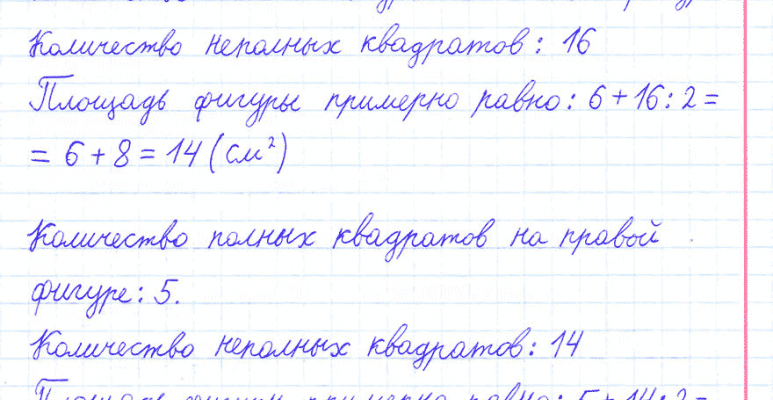 Количество неполных квадратов: 16
Площадь фигуры примерно равно: 6 + 16 : 2 =
= 6 + 8 = 14 (см²)
Количество полных квадратов на правой
фигуре: 5.
Количество неполных квадратов: 14
Площадь фигуры примерно равно: 5 + 14 : 2 =